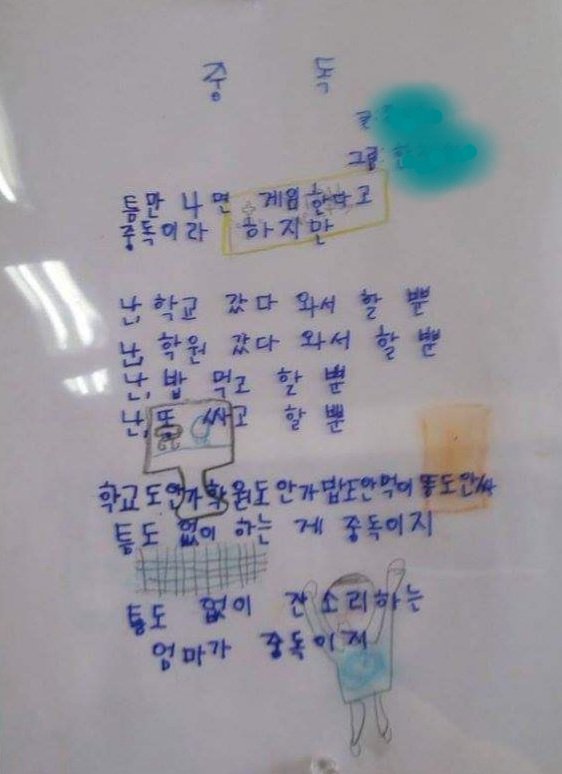 중 독
글
그림 한
틈만 나면 게임한다고
중독이라 하지만
난, 학교 갔다 와서 할 뿐
난, 학원 갔다 와서 할 뿐
난, 밥 먹고 할 뿐
난, 똥 싸고 할 뿐
학교도안가학원도안가밥도안먹이똥도안싸
틈도 없이 하는 게 중독이지
틈도 없이 잔소리하는
엄마가 중독이지